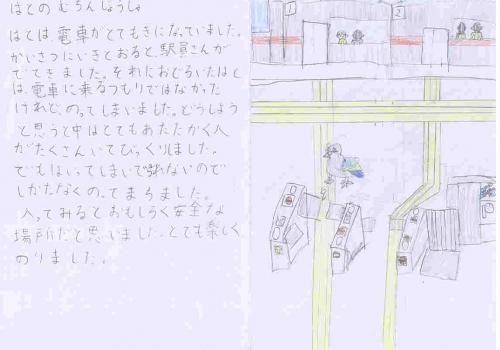 はとの むちんじょうしゃ
はとは電車がとてもきになっていました。
かいさつにいきとおると、駅員さんが
でてきました。それにおどろいたはと
は、電車に乗るつもりではなかった
けれどのってしまいました。どうしよう
と思うと中はとてもあたたかく人
がたくさんいてびっくりしました。
でもはいってしまいで勢れないので
しかたなくのってまちました。
入ってみるとおもしろく安全な
場所だと思いました。とても楽しく
のりました。
1
2